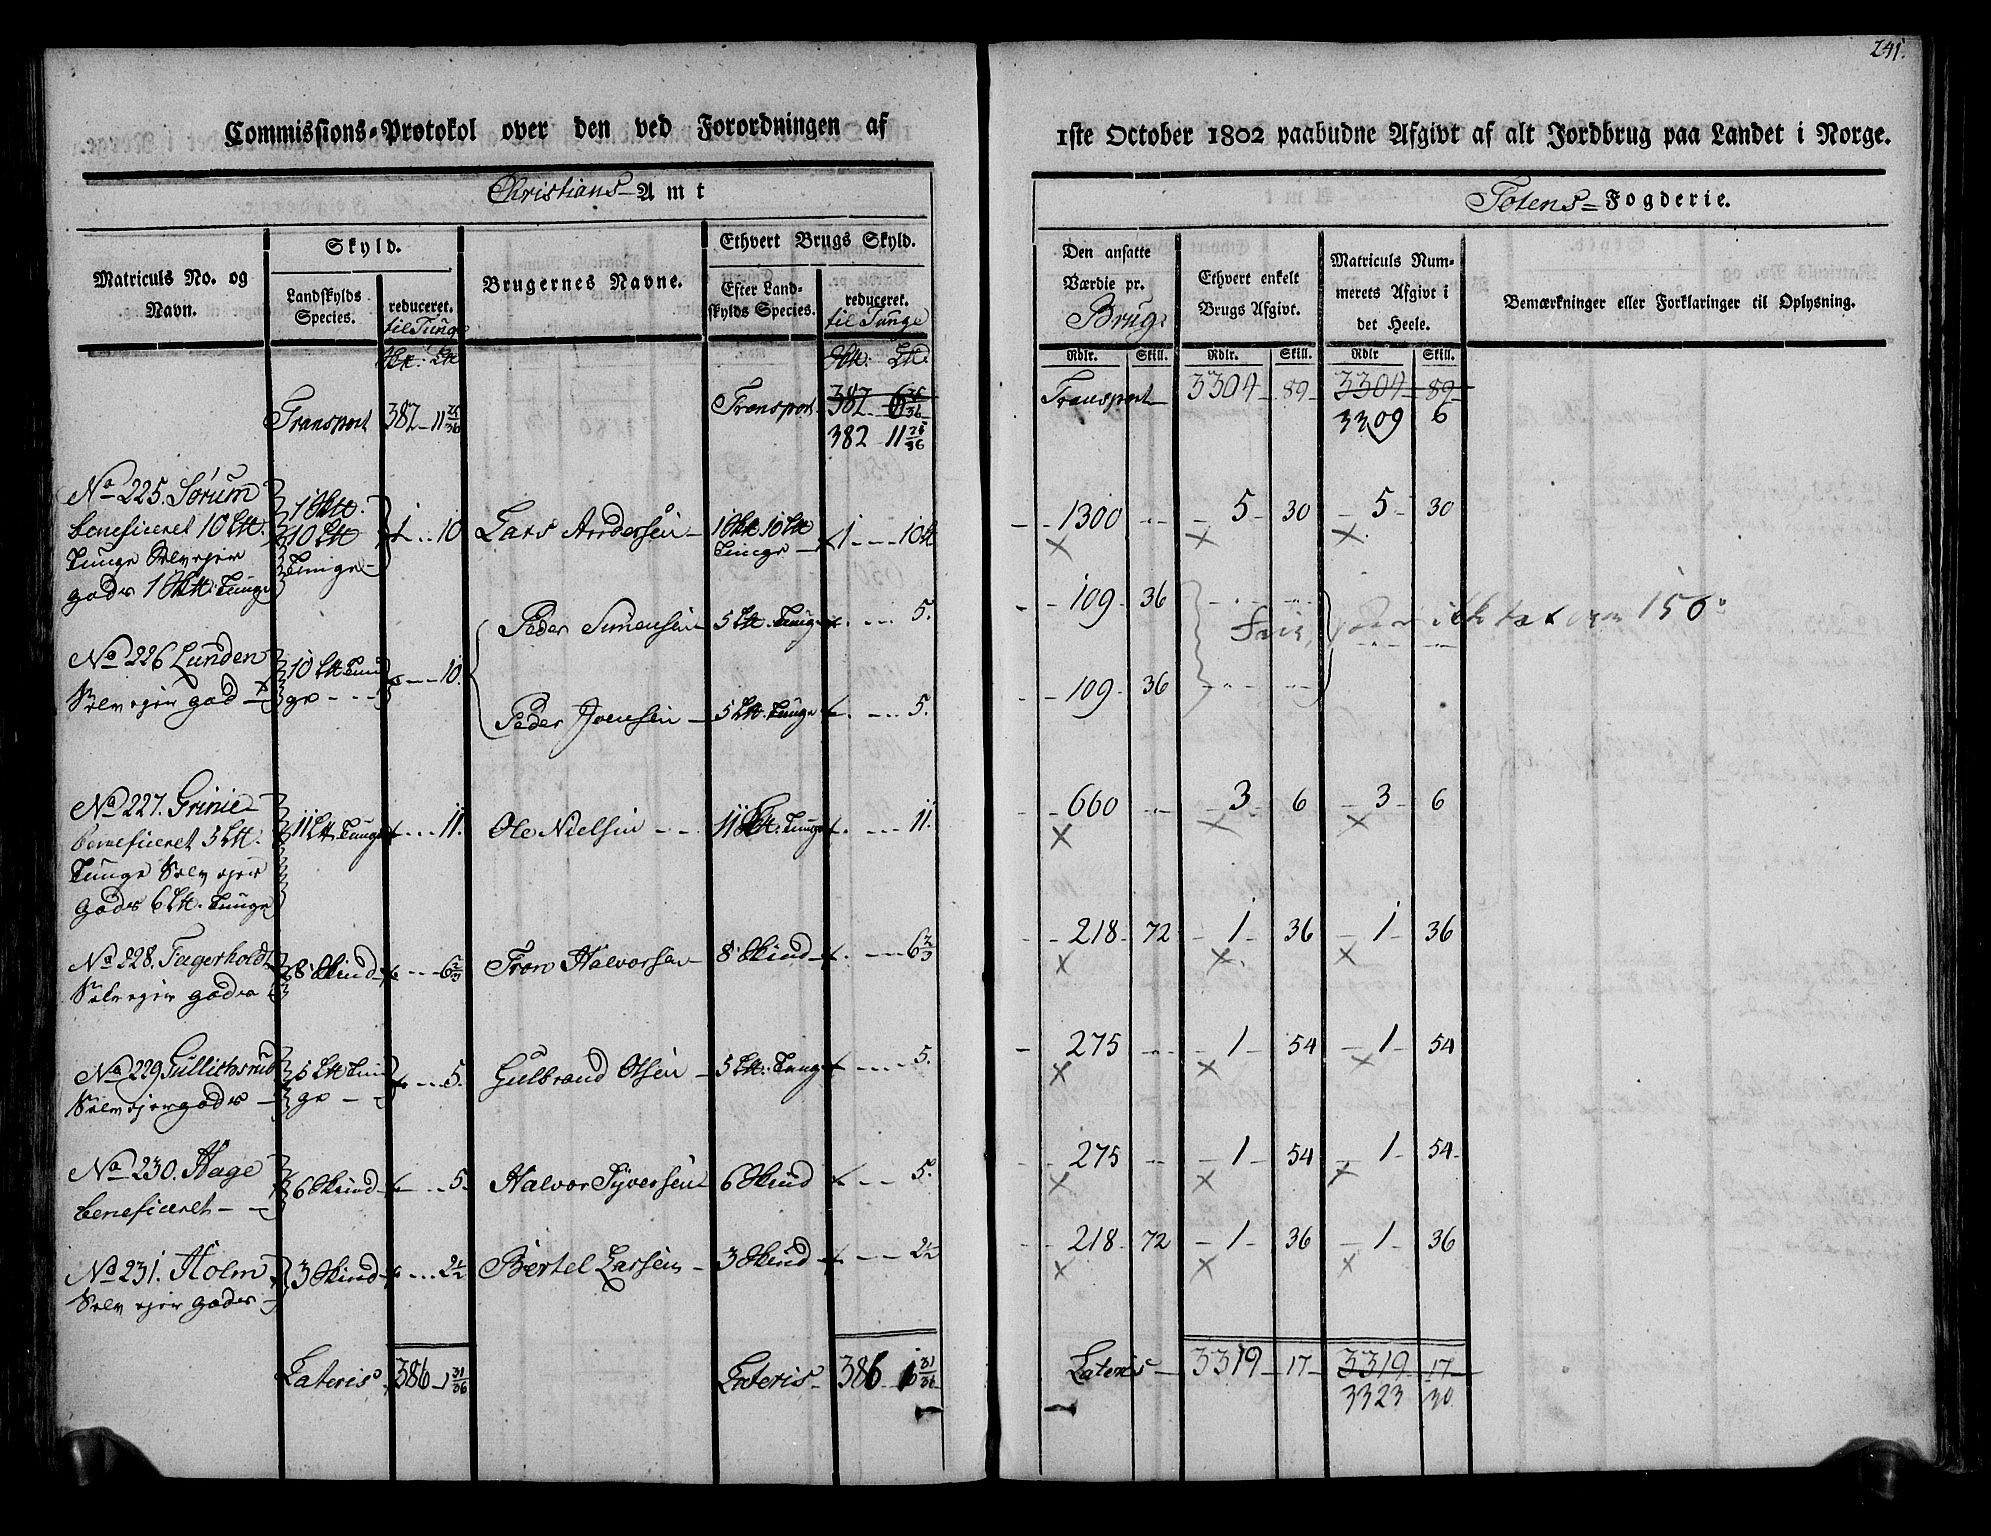 241.
Commissions-Protokol over den ved Forordningen af 1ste October 1802 paabudne Afgivt af alt Jordbrug paa Landet i Norge.
Christians-Amt
Totens-Fogderie.
Matriculs No. og Navn.
Skyld.
Landskylds Species.
reduceret. til Tunge
Brugernes Navne.
Ethvert Brugs Skyld.
Efter Landskylds Species.
reduceret. til Tunge
Den ansatte Værdie pr. Brug.
Ethvert enkelt Brugs Afgivt.
Matriculs Nummerets Afgivt i det Heele.
Bemærkninger eller Forklaringer til Oplysning.
Rdlr. Skill. Rdlr. Skill. Rdlr Skill.
Transport 382 11 25/36 Transport 382 6 25/36 Transport 3304 89 3304 89
382 11 25/36 3309 6
No 225. Sørum 1 Skt. 1 10 Lars Andersen 1 Skt 10 Lt 1 10 1300 5 30 5 30
beneficeret 10 Lt. 10 Lt Tunge
Tunge Selvejer Tunge
gods 1 Skt. Tunge
Peder Simensen 5 Lt. Tunge 5. 109 36
No 226 Lunden 10 Lt Tun 10.
Selvejer gods ge
Peder Joensen 5 Lt. Tunge 5. 109 36
No 227. Grinie 11 Lt. Tunge 11. Ole Nielsen 11 Lt. Tunge 11. 660 3 6 3 6
beneficeret 5 Lt.
Tunge Selvejer
gods 6 Lt. Tunge
No 228. Fagerholdt 8 Skind 6 2/3 Tron Halvorsen 8 Skind 6 2/3 218 72 1 36 1 36
Selvejer gods
No 229 Gullichsrud 5 Lt Tun 5. Gulbrand Olsen 5 Lt. Tunge 5. 275 1 54 1 54
Selvejergods ge
No 230. Hage 6 Skind 5. Halvor Syversen 6 Skind 5. 275 1 54 1 54
beneficeret
No 231. Holm 3 Skind 2 1/2 Bertel Larsen 3 Skind 2 1/2 218 72 1 36 1 36
Selvejer gods
Lateris 386 1 31/36 Lateris 386 1 31/36 Lateris 3319 17 3319 17
3323 30